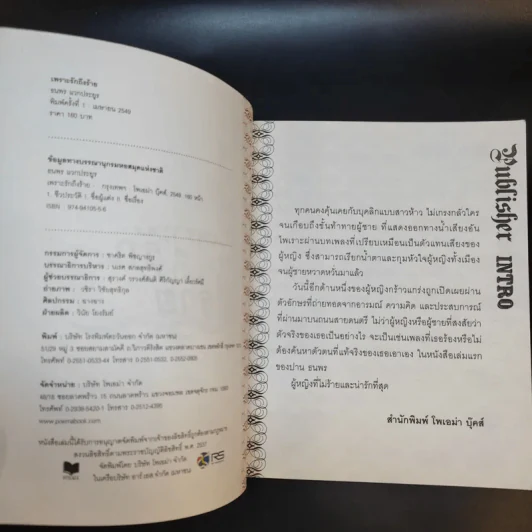 เพราะรักถึงร้าย
ธนพร แวกประยูร
พิมพ์ครั้งที่ 1 : เมษายน 2549
ราคา 160 บาท
ข้อมูลทางบรรณานุกรมหอสมุดแห่งชาติ
ธนพร แวกประยูร
เพราะรักถึงร้าย : กรุงเทพฯ : โพเอม่า บุ๊คส์, 2549. 180 หน้า.
1. ชีวประวัติ I. ชื่อผู้แต่ง II. ชื่อเรื่อง
ISBN :
กรรมการผู้จัดการ :
บรรณาธิการบริหาร :
ผู้ช่วยบรรณาธิการ :
ถ่ายภาพ :
ศิลปกรรม :
ฝ่ายผลิต :
พิมพ์ : บริษัท โรงพิมพ์ตะวันออก จำกัด มหาชน
จัดจำหน่าย : บริษัท โพเอม่า จำกัด
www.poemabook.com
หนังสือเล่มนี้ได้รับการอนุญาตจัดพิมพ์จากเจ้าของลิขสิทธิ์ถูกต้องตามกฎหมาย
สงวนลิขสิทธิ์ตามพระราชบัญญัติลิขสิทธิ์ พ.ศ. 2537
จัดพิมพ์โดย บริษัท โพเอม่า จำกัด
ในเครือบริษัท อาร์.เอส. จำกัด มหาชน
RS
Publisher INTRO
ทุกคนคงคุ้นเคยกับบุคลิกแบบสาวห้าว ไม่เกรงกลัวใคร
จนเกือบถึงขั้นท้าทายผู้ชาย ที่แสดงออกทางน้ำเสียงอัน
ไพเราะผ่านบทเพลงที่เปรียบเหมือนเป็นตัวแทนเสียงของ
ผู้หญิง ซึ่งสามารถเรียกน้ำตาและกุมหัวใจผู้หญิงทั้งเมือง
จนผู้ชายหวาดหวั่นมาแล้ว
วันนี้อีกด้านหนึ่งของผู้หญิงกร้าวแกร่งถูกเปิดเผยผ่าน
ตัวอักษรที่ถ่ายทอดจากอารมณ์ ความคิด และประสบการณ์
ที่ผ่านมาบนถนนสายดนตรี ไม่ว่าผู้หญิงหรือผู้ชายที่สงสัยว่า
ตัวจริงของเธอเป็นอย่างไร จะเป็นเช่นเพลงที่เธอร้องหรือไม่
ต้องค้นหาตัวตนที่แท้จริงของเธอเอาเอง ในหนังสือเล่มแรก
ของปาน ธนพร
ผู้หญิงที่ไม่ร้ายและน่ารักที่สุด
สำนักพิมพ์ โพเอม่า บุ๊คส์